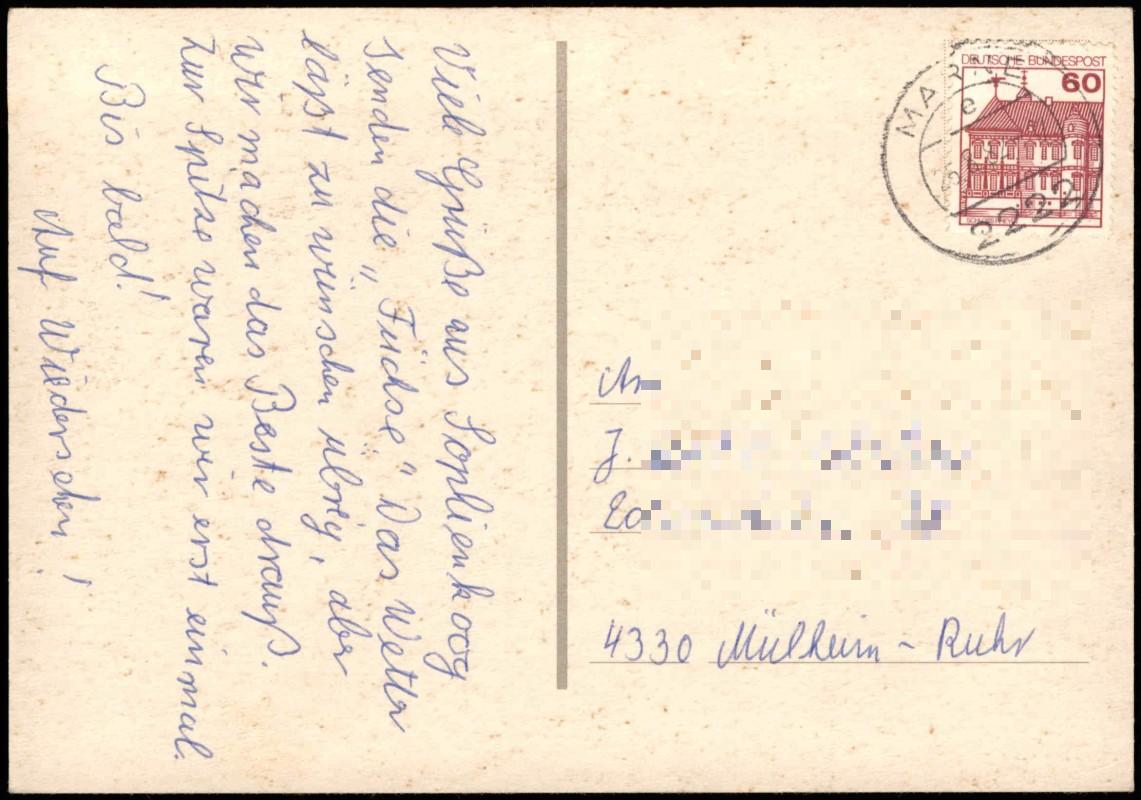 Viele Grüße aus Sophienkoog
senden die „Füchse“ Das Wetter
läßt zu wünschen übrig, aber
wir machen das Beste drauß.
Zur Spitze waren wir erst einmal.
Bis bald!
Auf Wiedersehen!
DEUTSCHE BUNDESPOST
60
MARNE
e
2222
An
J.
4330 Mülheim - Ruhr